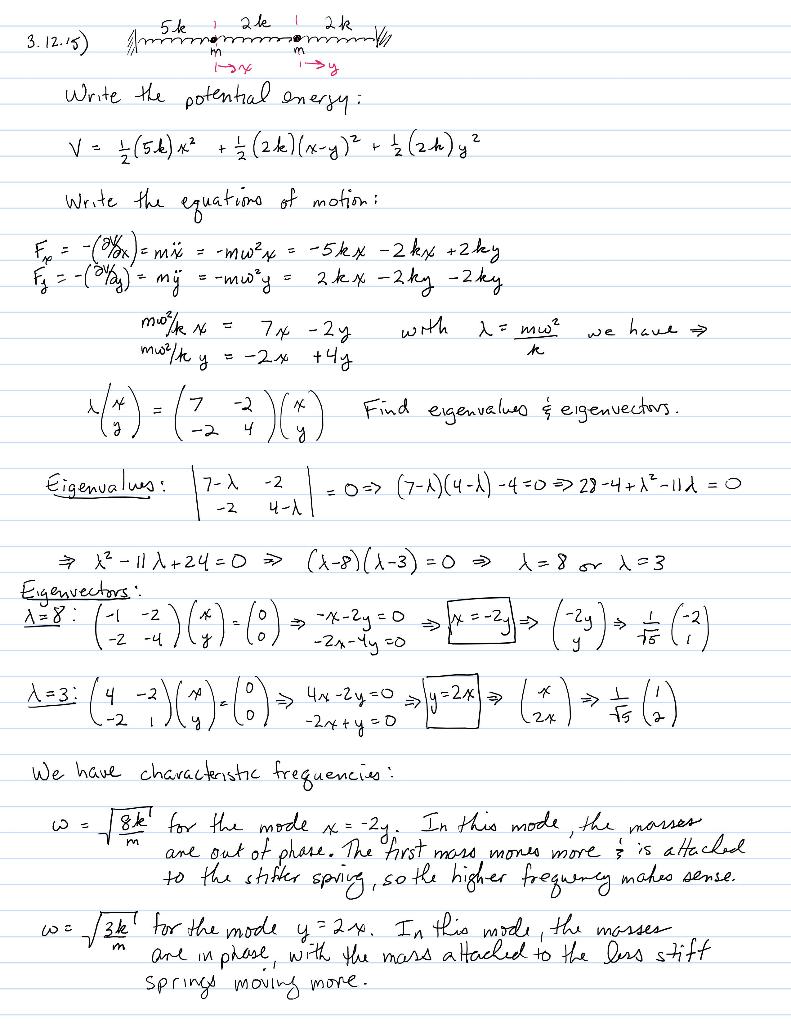 3.12.15) 5k 2k 2k
m m
→x →y
Write the potential energy:
V = ½(5k)x² + ½(2k)(x-y)² + ½(2k)y²
Write the equations of motion:
Fₓ = -(∂V/∂x) = mẍ = -mω²x = -5kx -2kx +2ky
F_y = -(∂V/∂y) = mÿ = -mω²y = 2kx -2ky -2ky
mω²/k x = 7x -2y with λ = mω²/k we have ⇒
mω²/k y = -2x +4y
λ(x y) = (7 -2 -2 4)(x y) Find eigenvalues & eigenvectors.
Eigenvalues: |7-λ -2 -2 4-λ| = 0 ⇒ (7-λ)(4-λ) -4=0 ⇒ 28-4+λ²-11λ = 0
⇒ λ²-11λ+24=0 ⇒ (λ-8)(λ-3) = 0 ⇒ λ=8 or λ=3
Eigenvectors:
λ=8: (-1 -2 -2 -4)(x y) = (0 0) ⇒ -x-2y=0 -2x-4y=0 ⇒ x=-2y ⇒ (-2y y) ⇒ 1/√5 (-2 1)
λ=3: (4 -2 -2 1)(x y) = (0 0) ⇒ 4x-2y=0 -2x+y=0 ⇒ y=2x ⇒ (x 2x) ⇒ 1/√5 (1 2)
We have characteristic frequencies:
ω = √(8k/m) for the mode x = -2y. In this mode, the masses
are out of phase. The first mass moves more & is attached
to the stiffer spring, so the higher frequency makes sense.
ω = √(3k/m) for the mode y = 2x. In this mode, the masses
are in phase, with the mass attached to the less stiff
springs moving more.